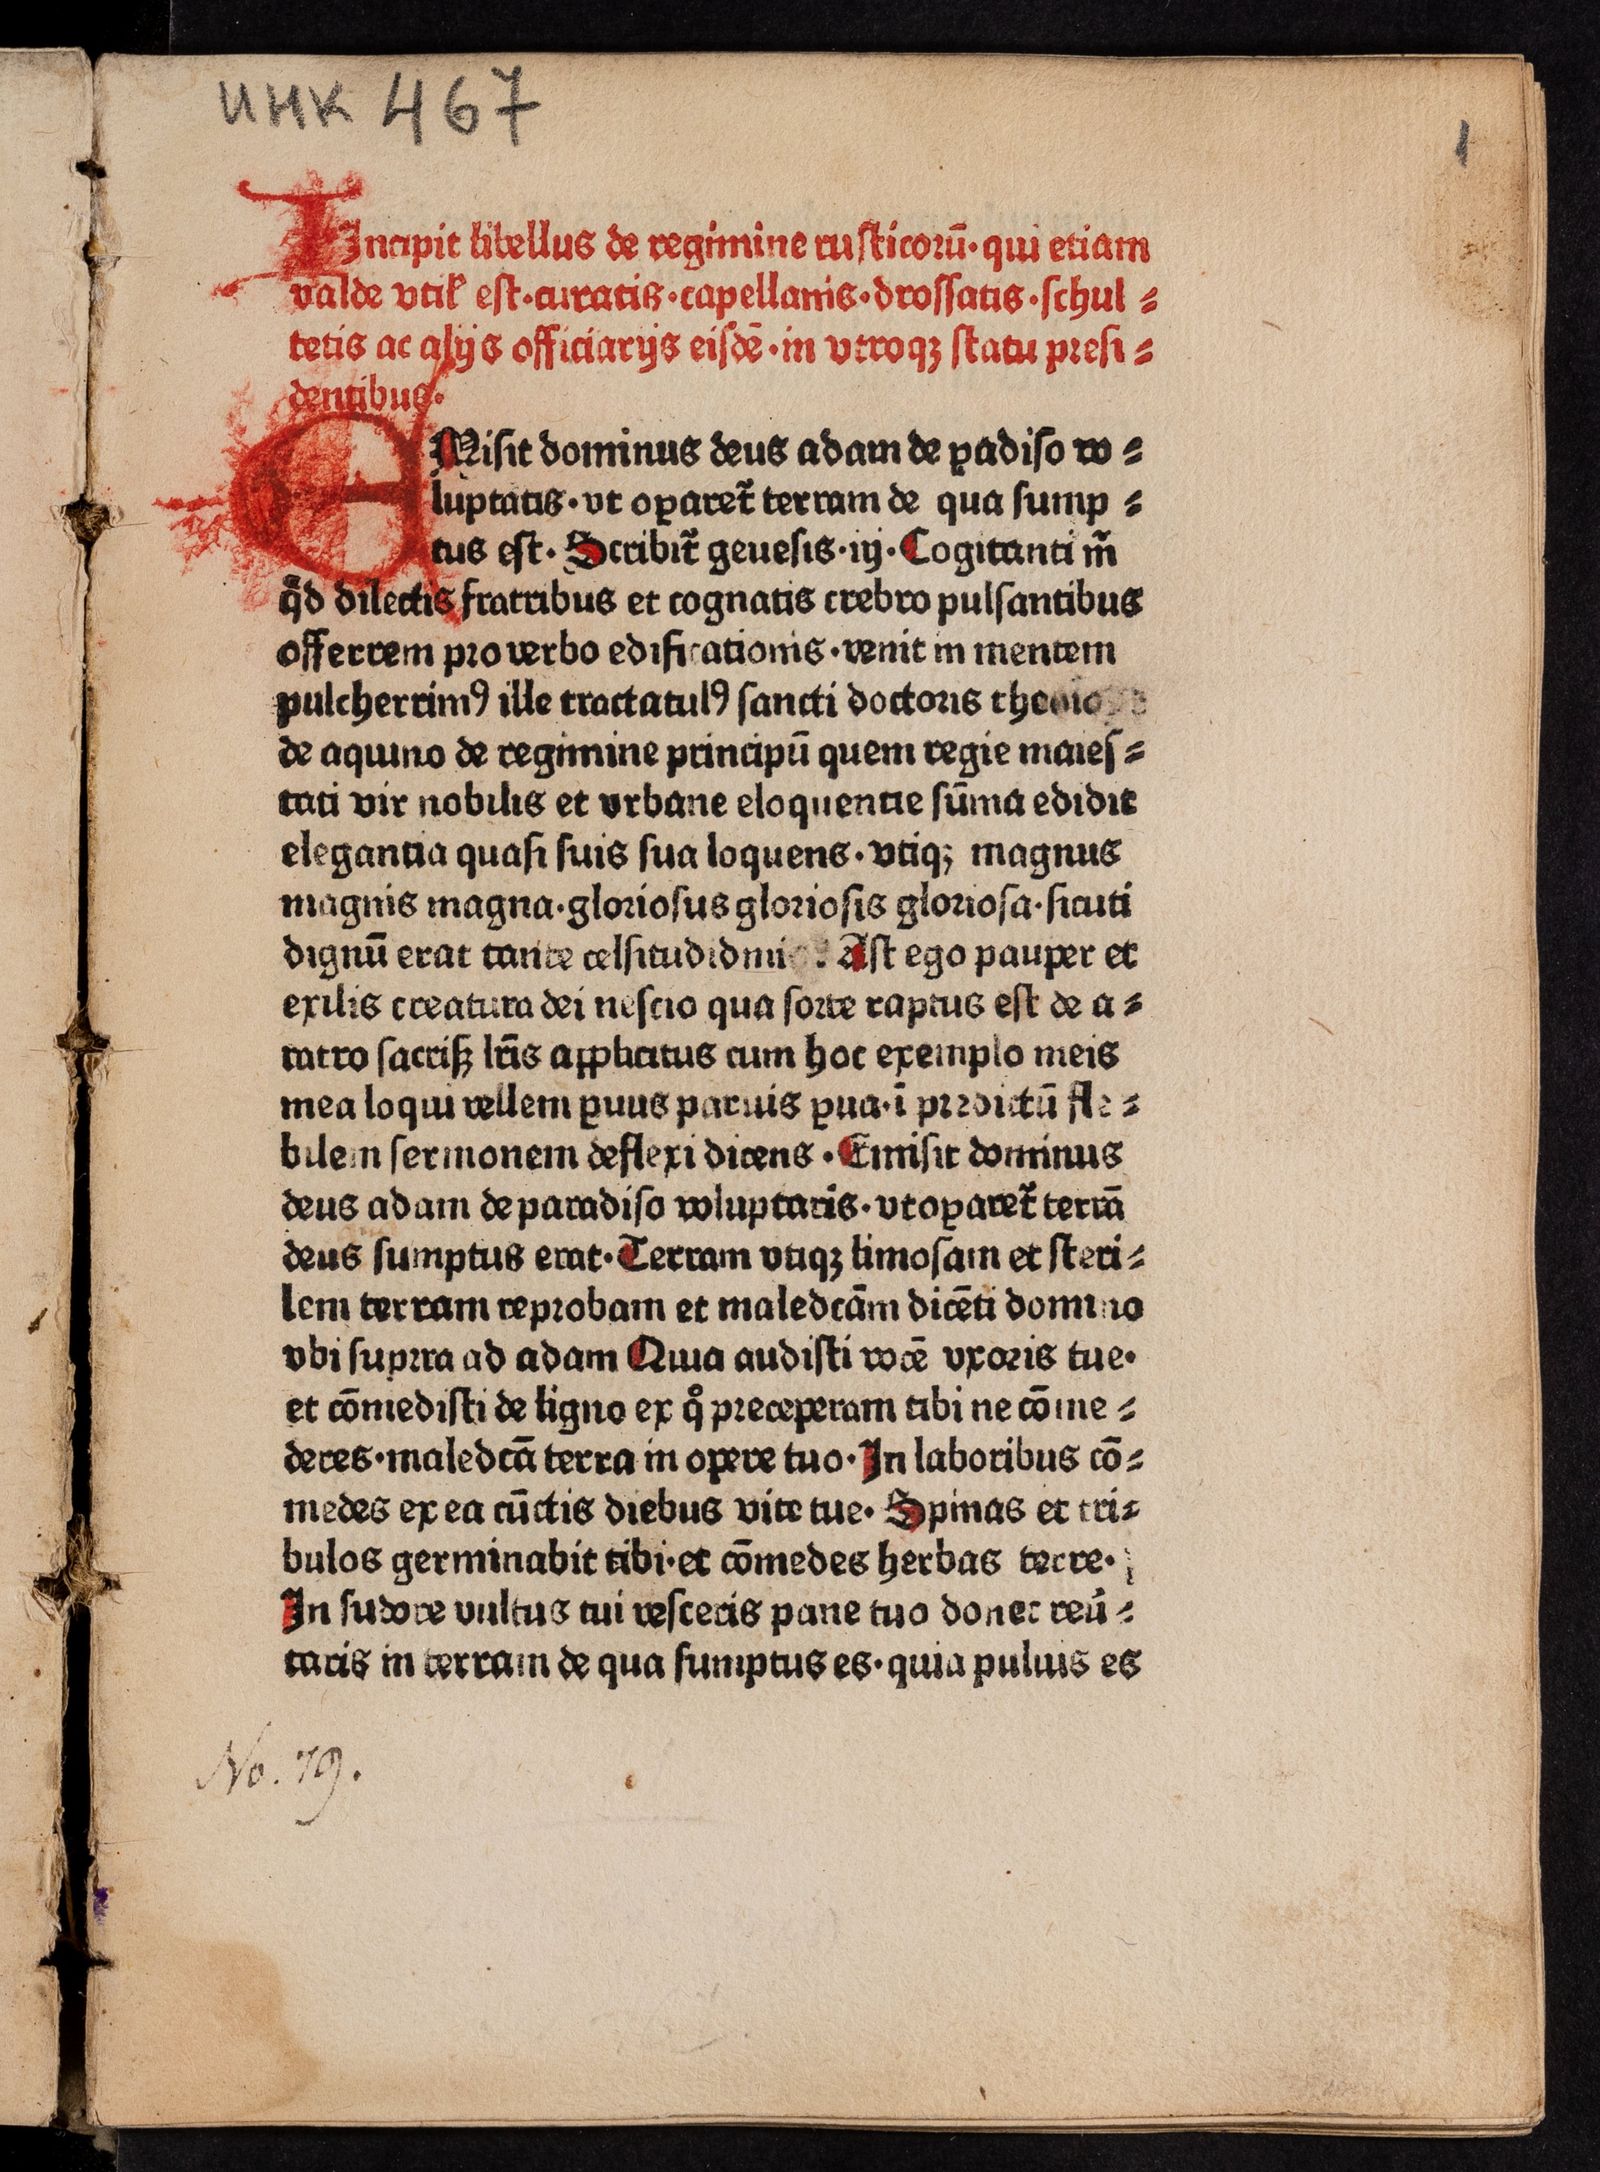 инк 467
1
Incipit libellus de regimine rusticorū· qui etiam
valde vtiꝉ est·curatis·capellanis·drossatis·schul⸗
tetis ac alijs officiarijs eisdē·in vtroqꝫ statu presi⸗
dentibus·
EMisit dominus deus adam de ꝑadiso vo⸗
luptatis·vt oꝑaret᷑ terram de qua sump⸗
tus est· Scribit᷑ geuesis·iij· Cogitanti m̄
qd̄ dilectis fratribus et cognatis crebro pulsantibus
offerrem pro verbo edificationis·venit in mentem
pulcherrimꝰ ille tractatulꝰ sancti doctoris
de aquino de regimine principū quem regie maies⸗
tati vir nobilis et vrbane eloquentie sūma edidit
elegantia quasi suis sua loquens·vtiqꝫ magnus
magnis magna·gloriosus gloriosis gloriosa·sicuti
dignū erat tante Ast ego pauper et
exilis creatura dei nescio qua sorte raptus est de a⸗
ratro sacrisqꝫ lr̄is applicitus cum hoc exemplo meis
mea loqui vellem ꝑuus paruis ꝑua·ī predictū fle⸗
bilem sermonem deflexi dicens·Emisit dominus
deus adam de paradiso voluptatis·vt oꝑaret᷑ terrā
deus sumptus erat·Terram vtiqꝫ limosam et steri⸗
lem terram reprobam et maledcām dicēti domino
vbi suprra ad adam Quia audisti vocē vxoris tue·
et cōmedisti de ligno ex qͦ preceperam tibi ne cōme⸗
deres·maledcā terra in opere tuo·In laboribus cō⸗
medes ex ea cūctis diebus vite tue· Spinas et tri⸗
bulos germinabit tibi·et cōmedes herbas terre·
In sudore vultus tui vesceris pane tuo donec reū⸗
taris in terram de qua sumptus es·quia puluis es
No. 79.